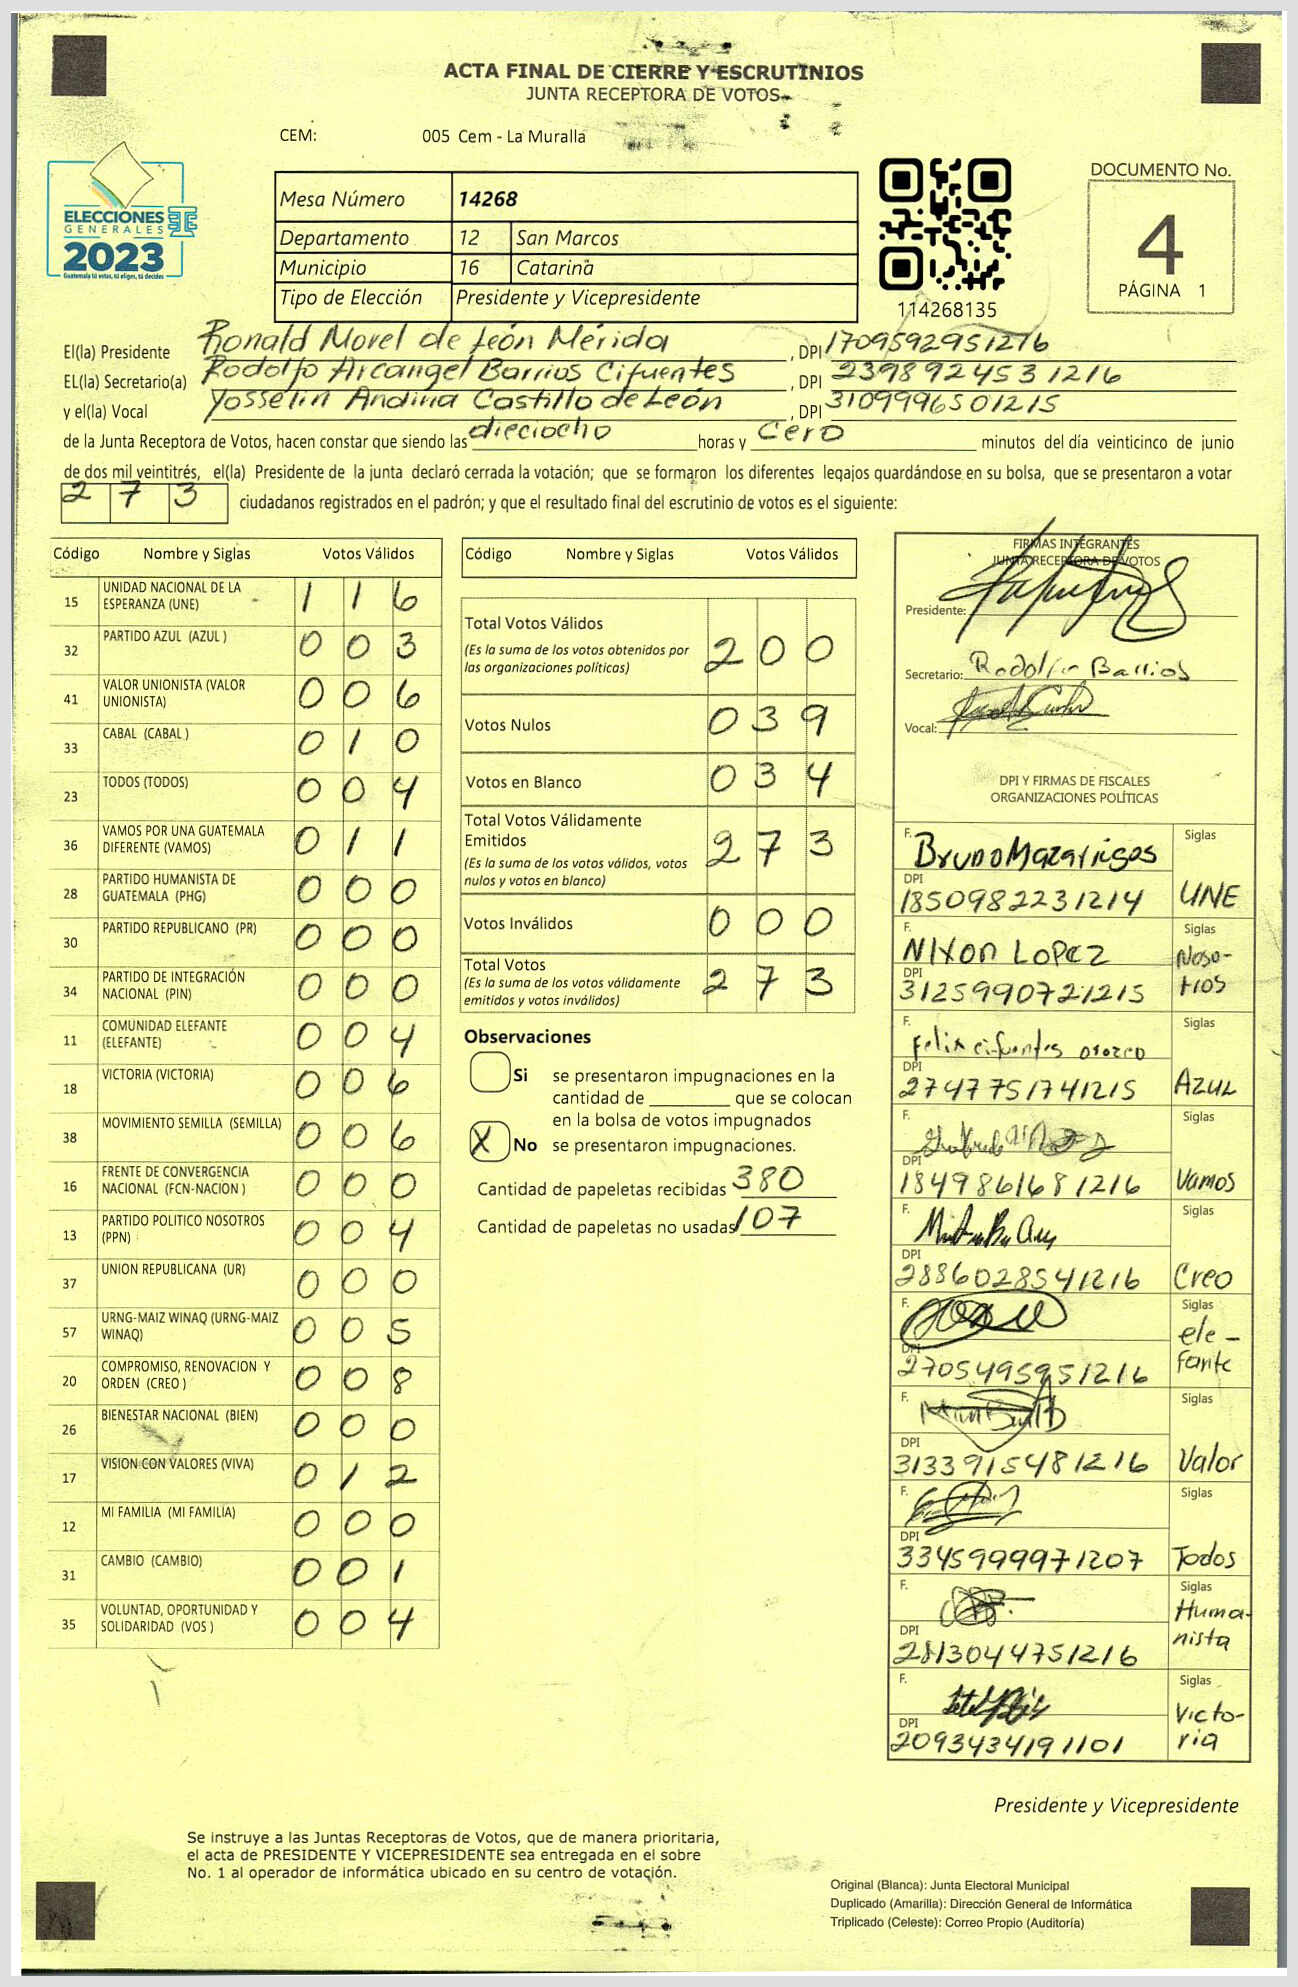 ACTA FINAL DE CIERRE Y ESCRUTINIOS
JUNTA RECEPTORA DE VOTOS
CEM: 005 Cem - La Muralla
ELECCIONES
GENERALES
2023
Guatemala tú votas, tú eliges, tú decides
Mesa Número 14268
Departamento 12 San Marcos
Municipio 16 Catarina
Tipo de Elección Presidente y Vicepresidente
114268135
DOCUMENTO No.
4
PÁGINA 1
El(la) Presidente Ronald Morel de León Mérida, DPI 1709592951216
EL(la) Secretario(a) Rodolfo Arcangel Barrios Cifuentes, DPI 2398924531216
y el(la) Vocal Yosselin Andina Castillo de León, DPI 3109996501215
de la Junta Receptora de Votos, hacen constar que siendo las dieciocho horas y cero minutos del día veinticinco de junio
de dos mil veintitrés, el(la) Presidente de la junta declaró cerrada la votación; que se formaron los diferentes legajos guardándose en su bolsa, que se presentaron a votar
273 ciudadanos registrados en el padrón; y que el resultado final del escrutinio de votos es el siguiente:
Código Nombre y Siglas Votos Válidos
15 UNIDAD NACIONAL DE LA ESPERANZA (UNE) 1 1 6
32 PARTIDO AZUL (AZUL ) 0 0 3
41 VALOR UNIONISTA (VALOR UNIONISTA) 0 0 6
33 CABAL (CABAL ) 0 1 0
23 TODOS (TODOS) 0 0 4
36 VAMOS POR UNA GUATEMALA DIFERENTE (VAMOS) 0 1 1
28 PARTIDO HUMANISTA DE GUATEMALA (PHG) 0 0 0
30 PARTIDO REPUBLICANO (PR) 0 0 0
34 PARTIDO DE INTEGRACIÓN NACIONAL (PIN) 0 0 0
11 COMUNIDAD ELEFANTE (ELEFANTE) 0 0 4
18 VICTORIA (VICTORIA) 0 0 6
38 MOVIMIENTO SEMILLA (SEMILLA) 0 0 6
16 FRENTE DE CONVERGENCIA NACIONAL (FCN-NACION ) 0 0 0
13 PARTIDO POLITICO NOSOTROS (PPN) 0 0 4
37 UNION REPUBLICANA (UR) 0 0 0
57 URNG-MAIZ WINAQ (URNG-MAIZ WINAQ) 0 0 5
20 COMPROMISO, RENOVACION Y ORDEN (CREO ) 0 0 8
26 BIENESTAR NACIONAL (BIEN) 0 0 0
17 VISION CON VALORES (VIVA) 0 1 2
12 MI FAMILIA (MI FAMILIA) 0 0 0
31 CAMBIO (CAMBIO) 0 0 1
35 VOLUNTAD, OPORTUNIDAD Y SOLIDARIDAD (VOS ) 0 0 4
Código Nombre y Siglas Votos Válidos
Total Votos Válidos 2 0 0
(Es la suma de los votos obtenidos por
las organizaciones políticas)
Votos Nulos 0 3 9
Votos en Blanco 0 3 4
Total Votos Válidamente
Emitidos 2 7 3
(Es la suma de los votos válidos, votos
nulos y votos en blanco)
Votos Inválidos 0 0 0
Total Votos 2 7 3
(Es la suma de los votos válidamente
emitidos y votos inválidos)
Observaciones
Si se presentaron impugnaciones en la
cantidad de que se colocan
en la bolsa de votos impugnados
X No se presentaron impugnaciones.
Cantidad de papeletas recibidas 380
Cantidad de papeletas no usadas 107
FIRMAS INTEGRANTES
JUNTA RECEPTORA DE VOTOS
Presidente:
Secretario: Rodolfo Barrios
Vocal:
DPI Y FIRMAS DE FISCALES
ORGANIZACIONES POLÍTICAS
F. Bruno Mazariegos Siglas
DPI 1850982231214 UNE
F. NIXON LOPEZ Siglas
DPI 3125990721215 Nosotros
F. Felix cifuentes orozco Siglas
DPI 2747751741215 AZUL
F. Siglas
DPI 1849861681216 Vamos
F. Siglas
DPI 2886028541216 Creo
F. Siglas
DPI 2705495951216 elefante
F. Siglas
DPI 3133915481216 Valor
F. Siglas
DPI 3345999971207 Todos
F. Siglas
DPI 2813044751216 Humanista
F. Siglas
DPI 2093434191101 Victoria
Presidente y Vicepresidente
Se instruye a las Juntas Receptoras de Votos, que de manera prioritaria,
el acta de PRESIDENTE Y VICEPRESIDENTE sea entregada en el sobre
No. 1 al operador de informática ubicado en su centro de votación.
Original (Blanca): Junta Electoral Municipal
Duplicado (Amarilla): Dirección General de Informática
Triplicado (Celeste): Correo Propio (Auditoría)